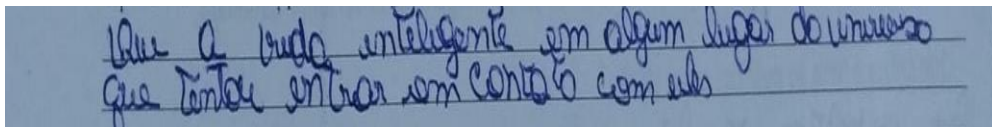 Que a vida inteligente em algum lugar do universo
que tentou entrar em contato com eles